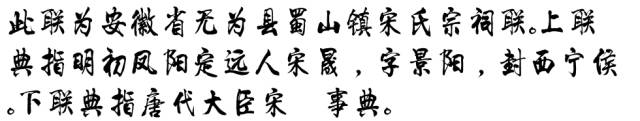 此联为安徽省无为县蜀山镇宋氏宗祠联。上联
典指明初凤阳定远人宋晟，字景阳，封西宁侯
。下联典指唐代大臣宋　事典。